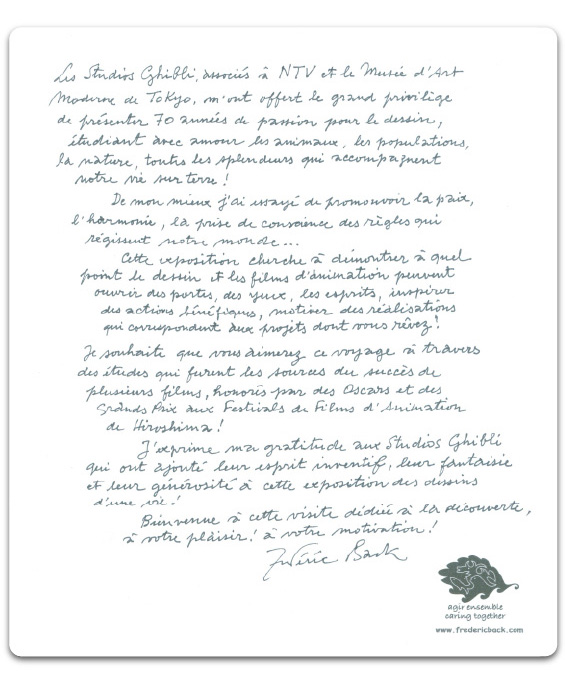 Les Studios Ghibli, associés à NTV et le Musée d'Art
Moderne de Tokyo, m'ont offert le grand privilège
de présenter 70 années de passion pour le dessin,
étudiant avec amour les animaux, les populations,
la nature, toutes les splendeurs qui accompagnent
notre vie sur terre !
De mon mieux j'ai essayé de promouvoir la paix,
l'harmonie, la prise de conscience des règles qui
régissent notre monde...
Cette exposition cherche à démontrer à quel
point le dessin et les films d'animation peuvent
ouvrir des portes, des yeux, les esprits, inspirer
des actions bénéfiques, motiver des réalisations
qui correspondent aux projets dont vous rêvez !
Je souhaite que vous aimerez ce voyage à travers
des études qui furent les sources du succès de
plusieurs films, honorés par des Oscars et des
Grands Prix aux Festivals de Films d'Animation
de Hiroshima !
J'exprime ma gratitude aux Studios Ghibli
qui ont ajouté leur esprit inventif, leur fantaisie
et leur générosité à cette exposition des dessins
d'une vie !
Bienvenue à cette visite dédiée à la découverte,
à votre plaisir ! à votre motivation !
Frédéric Back
agir ensemble
caring together
www.fredericback.com